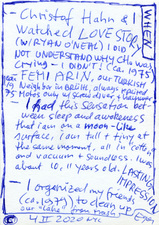 - Christof Hahn & I
watched LOVE STORY
(W/RYAN O'NEAL) I DID
NOT UNDERSTAND WHY CH. WAS
CRYING - I DIDN'T! Ca. 1975
FEMI ARIN, our TURKISH
Neighbor in Brühl, always repaired
Motors only w/ screw driver &
- I had this sensation bet-
ween sleep and awakeness
that I am on a moon-like
surface, I am tall & tiny at
the same moment, all in
and vacuum & soundless. I was
about 10, 11 years old.
LASTING IMPRESSION
- I organized my friends
(ca. 1975) to clean
our from
4. II 2020 NYC
WHEN